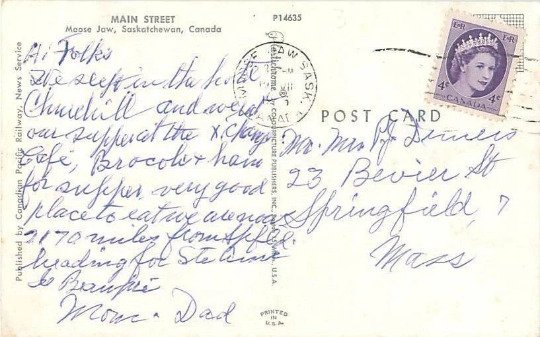 MAIN STREET
Moose Jaw, Saskatchewan, Canada
P14635
Hi Folks
We sleep in the hotel
Churchill and went
our supper at the X. Change
Cafe, Brocole + ham
for supper very good
place to eat we are now
2170 miles from Spfld.
heading for Ste Anne
de Beaupré
Mom - Dad
Published by Canadian Pacific Railway, News Service
MOOSE JAW SASK.
POST CARD
4¢ 4¢
CANADA
Mr. Mrs
23 Bevier St
Springfield, 7
Mass
PRINTED
IN
U.S.A.